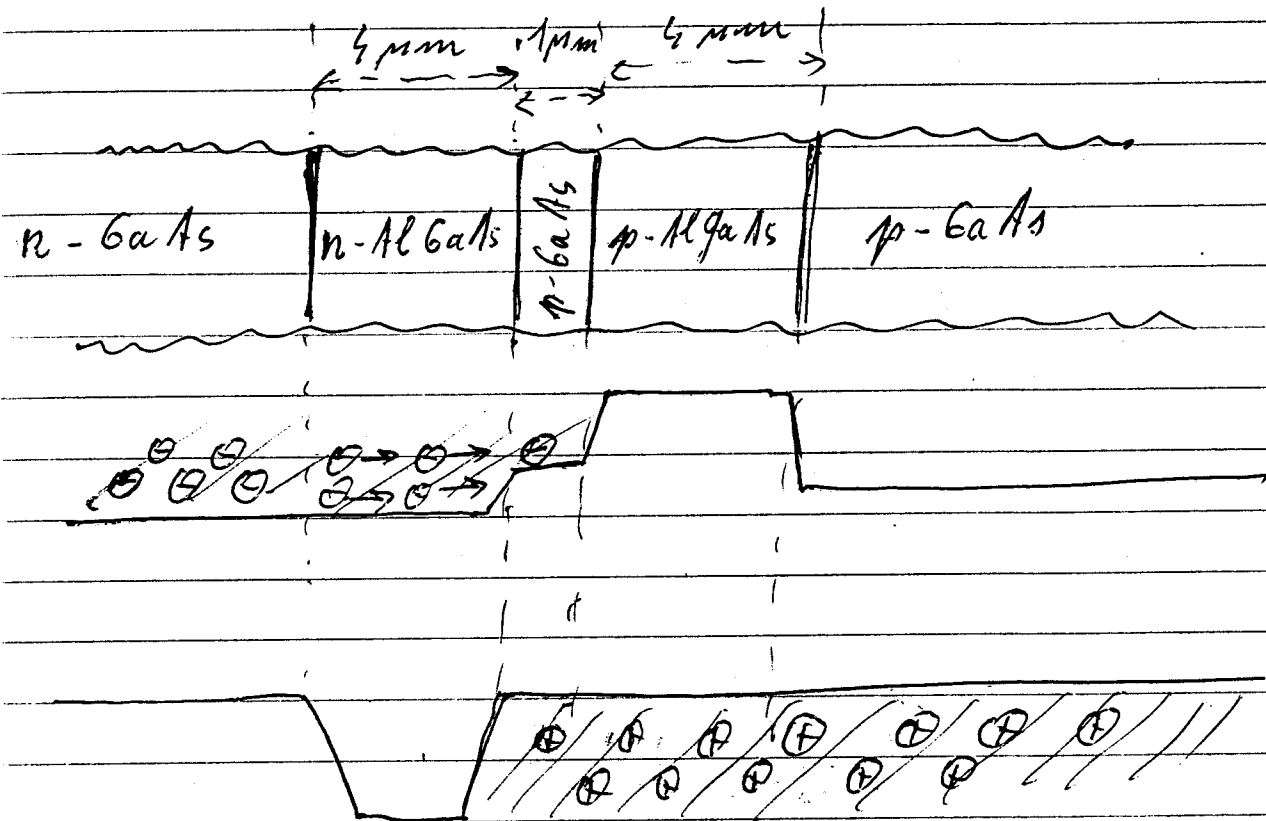 4 µm 1µm 4 µm
n-GaAs n-AlGaAs p-GaAs p-AlgaAs p-GaAs
⊖ ⊖ ⊖ → ⊖ → ⊖
⊖ ⊖ ⊖ ⊖ → ⊖ →
⊕ ⊕ ⊕ ⊕ ⊕ ⊕ ⊕
⊕ ⊕ ⊕ ⊕ ⊕